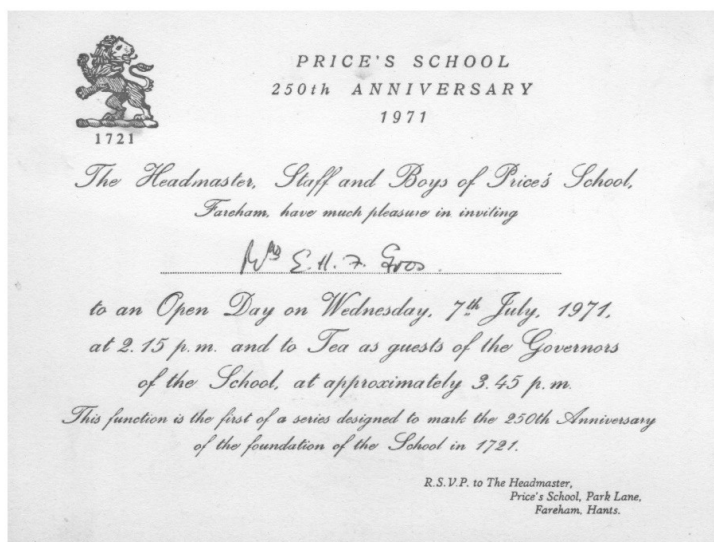 PRICE'S SCHOOL
250th ANNIVERSARY
1971
1721
The Headmaster, Staff and Boys of Price's School,
Fareham, have much pleasure in inviting
Mrs E. H. F.
to an Open Day on Wednesday, 7th July, 1971,
at 2.15 p.m. and to Tea as guests of the Governors
of the School, at approximately 3.45 p.m.
This function is the first of a series designed to mark the 250th Anniversary
of the foundation of the School in 1721.
R.S.V.P. to The Headmaster,
Price's School, Park Lane,
Fareham, Hants.